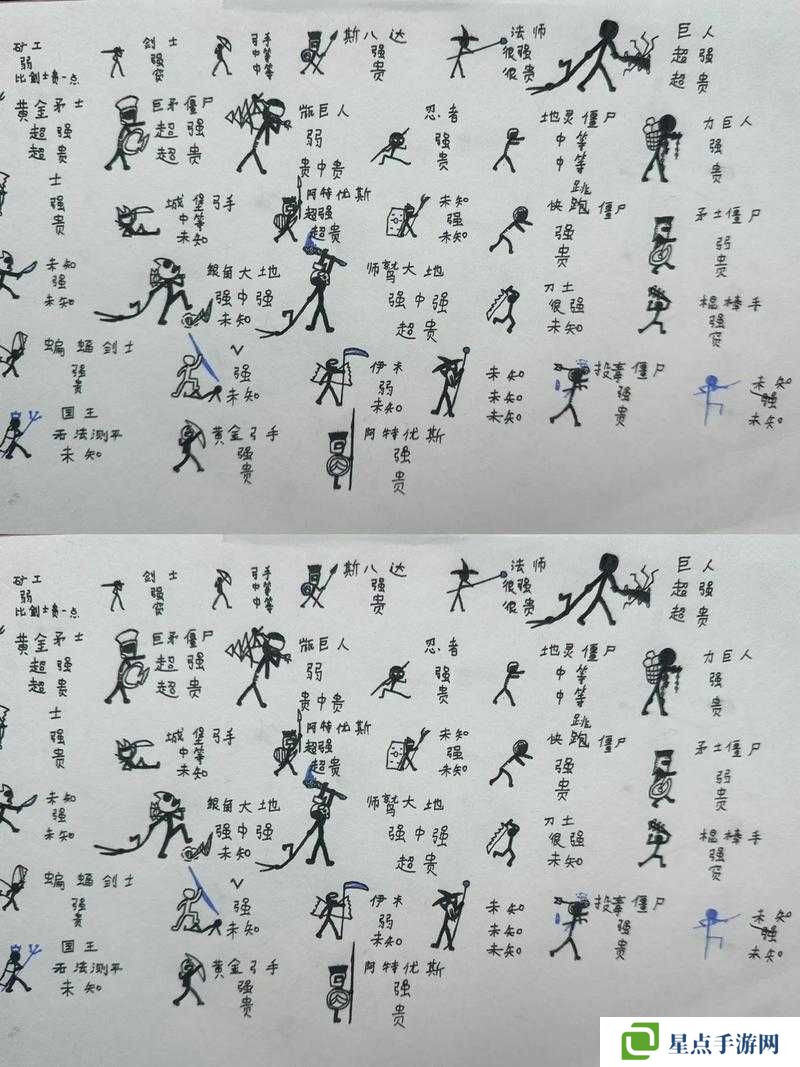 矿工
弱
比剑士贵一点
剑士
强
贫
弓手
中等
中等
斯八达
强
贵
法师
很强
很贵
巨人
超强
超贵
黄金矛士
超强
超贵
巨矛僵尸
超强
超贵
瓶巨人
弱
贵中贵
忍者
强
贵
地灵僵尸
中等
中等
力巨人
强
贵
士
强
贵
城堡弓手
中等
未知
阿特优斯
超强
超贵
未知
强
未知
跳
快跑僵尸
强
贵
矛士僵尸
弱
贵
未知
强
未知
银角大地
强中强
未知
师鹫大地
强中强
超贵
刀士
很强
未知
棍棒手
强
贫
蝙蝠剑士
强
贵
V
强
未知
伊卡
弱
未知
未知
未知
未知
投毒僵尸
强
贵
未知
强
未知
国王
无法测平
未知
黄金弓手
强
贵
阿特优斯
强
贵
矿工
弱
比剑士贵一点
剑士
强
贫
弓手
中等
中等
斯八达
强
贵
法师
很强
很贵
巨人
超强
超贵
黄金矛士
超强
超贵
巨矛僵尸
超强
超贵
瓶巨人
弱
贵中贵
忍者
强
贵
地灵僵尸
中等
中等
力巨人
强
贵
士
强
贵
城堡弓手
中等
未知
阿特优斯
超强
超贵
未知
强
未知
跳
快跑僵尸
强
贵
矛士僵尸
弱
贵
未知
强
未知
银角大地
强中强
未知
师鹫大地
强中强
超贵
刀士
很强
未知
棍棒手
强
贫
蝙蝠剑士
强
贵
V
强
未知
伊卡
弱
未知
未知
未知
未知
投毒僵尸
强
贵
未知
强
未知
国王
无法测平
未知
黄金弓手
强
贵
阿特优斯
强
贵
星点手游网